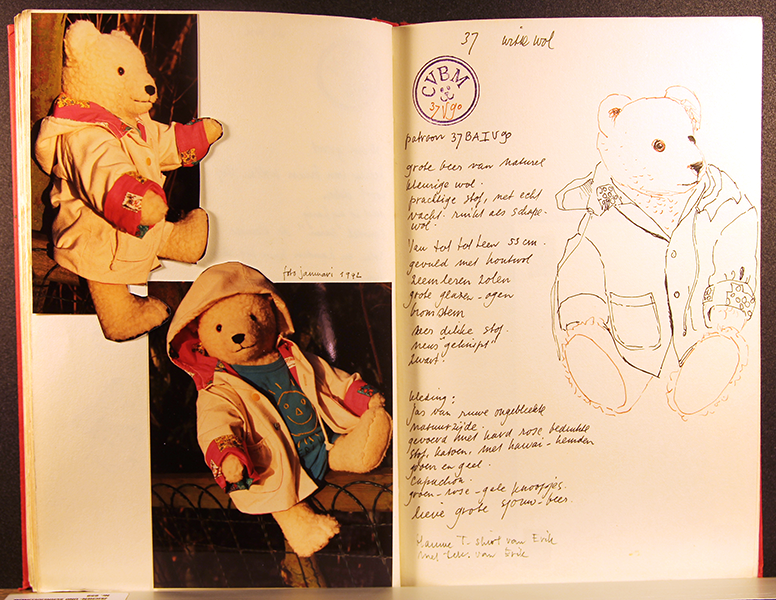 foto januari 1992
37 witte wol
CVBM
37 V 90
patroon 37 BA IV 90
grote beer van naturel
kleurige wol.
prachtige stof, met echt
vacht. ruikt als schape-
wol.
Van tot tot teen 55 cm.
gevuld met houtwol
zeemleren zolen
grote glazen-ogen
bromstem
zeer dikke stof.
neus "geknipt"
zwart.
kleding:
Jas van ruwe ongebleekte
natuurzijde.
gevoerd met hard rose bedrukte
stof, katoen, met hawai-hemden
groen en geel.
Capuchon.
groen-rose-gele knoopjes.
lieve grote sjouw-beer.
Blauwe T-shirt van Erik
met van Erik